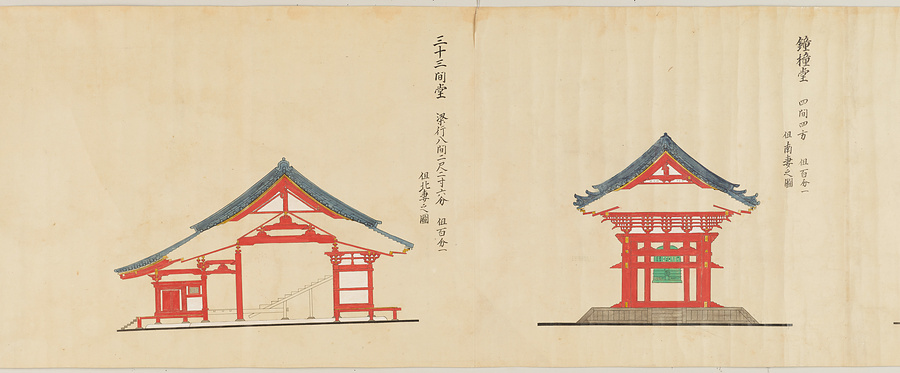 鐘撞堂 四間四方 但百分一
但南妻之圖
三十三間堂 梁行八間二尺二寸六分 但百分一
但北妻之圖